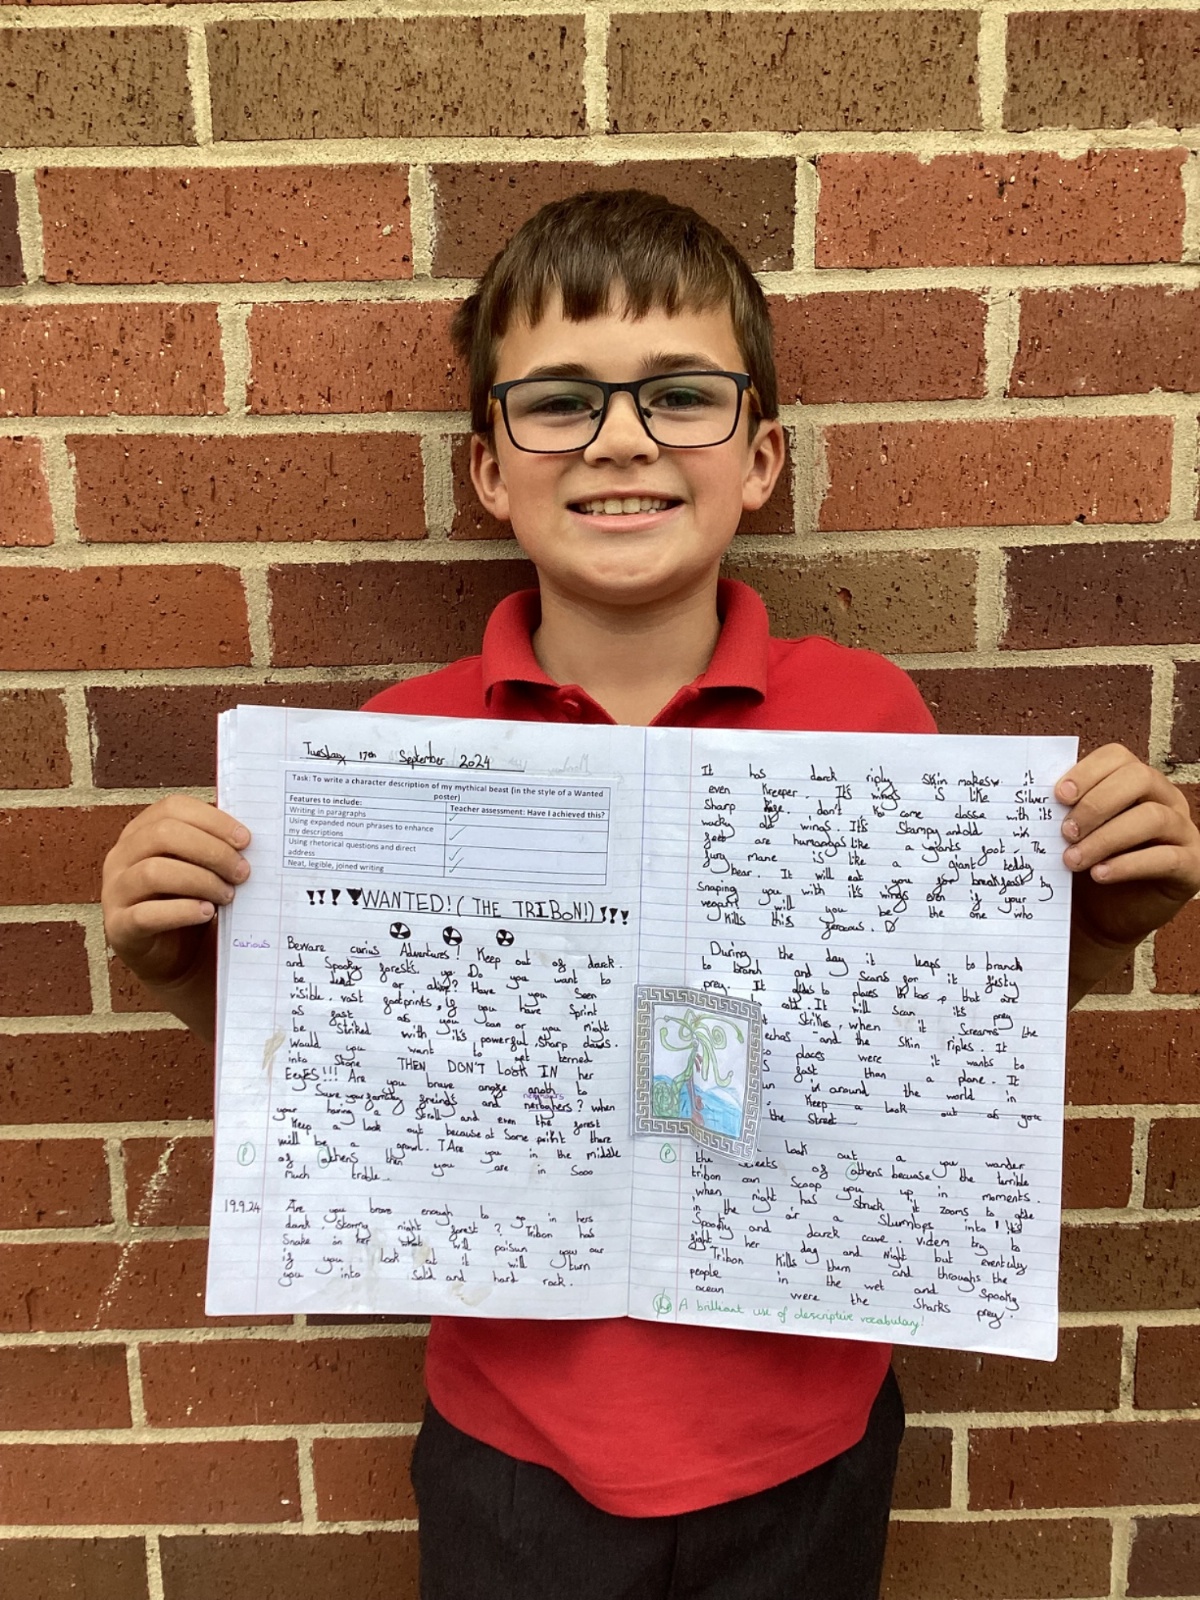 Tuesday 17th September 2024
Task: To write a character description of my mythical beast (in the style of a Wanted poster)
Features to include:
Teacher assessment: Have I achieved this?
Writing in paragraphs ✓
Using expanded noun phrases to enhance my descriptions ✓
Using rhetorical questions and direct address ✓
Neat, legible, joined writing ✓
WANTED! ( THE TRIBON!)
curious
Beware curius Adventures! Keep out of darck
and Spooky forests. Do you want to
be dead or alive? Have you Seen
visible. vast footprints, If you have Sprint
as fast as you can or you might
be Striked with it's powerful, Sharp claws.
Would you want to get terned
into Stone THEN DON'T LOOK IN her
EyES!!! Are you brave to
your and nerbahers? when
your haring a Stroll and even the forest
Keep a look out because at Some point there
will be a growl. Are you in the middle
of athens then you are in Sooo
much treble
19.9.24
Are you brave enough to go in hers
darck Stormy night forest? Tribon has
Snake on her will poisun you our
if you look at it will turn
you into Solid and hard rock.
It has darck riply Skin makes it
even Kreeper. It's wings is like Silver
Sharp don't come closse with it's
wacky old wings. It's Stampy and old
feet are humongas like a giants foot. The
fury mane is like a giant teddy
bear. It will eat you for breakfeast by
Snaping you with it's wings even if your
will you be the one who
Kills this ferocous.
During the day it leaps to branch
to branch and Scans for it festy
prey. It to places that are
cold. It will scan its prey
Strikes, when it Screams the
echos and the Skin riples. It
to places were it wants to
fast than a plane. It
in around the world in
Keep a look out as you
the Street
look out a you wander
the Streets of athens because the terrible
tribon can Scoop you up in moments.
when night has Struck it zooms to
in the air a Slumlops into it's
Spooky and darck cave. try to
fight her day and Night but
Tribon Kills them and throughs the
people in the wet and Spooky
ocean were the Sharks prey.
A brilliant use of descriptive vocabulary!